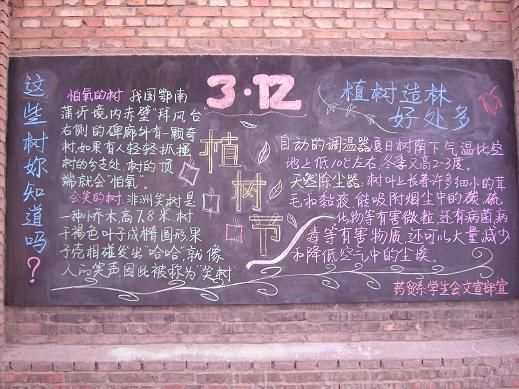 这些树妳知道吗?
怕氧的树 我国鄂南
蒲圻境内赤壁"拜风台"
右侧的碑廊外有一颗奇
树,如果有人轻轻扒搔
树的分支处,树的顶
端就会"怕氧"。
会笑的树:非洲笑树是
一种小乔木高7、8米,树
干褐色叶子成椭圆形果
子壳相碰发出"哈哈"就像
人的笑声因此被称为"笑树"
3·12
植树节
植树造林
好处多
自动的调温器:夏日树荫下气温比空
地上低10℃左右,冬季又高2-3度。
天然除尘器:树叶上长着许多细小的茸
毛和黏液,能吸附烟尘中的碳、硫
化物等有害微粒,还有病菌,病
毒等有害物质,还可以大量减少
和降低空气中的尘埃。
药贸系学生会文宣部宣